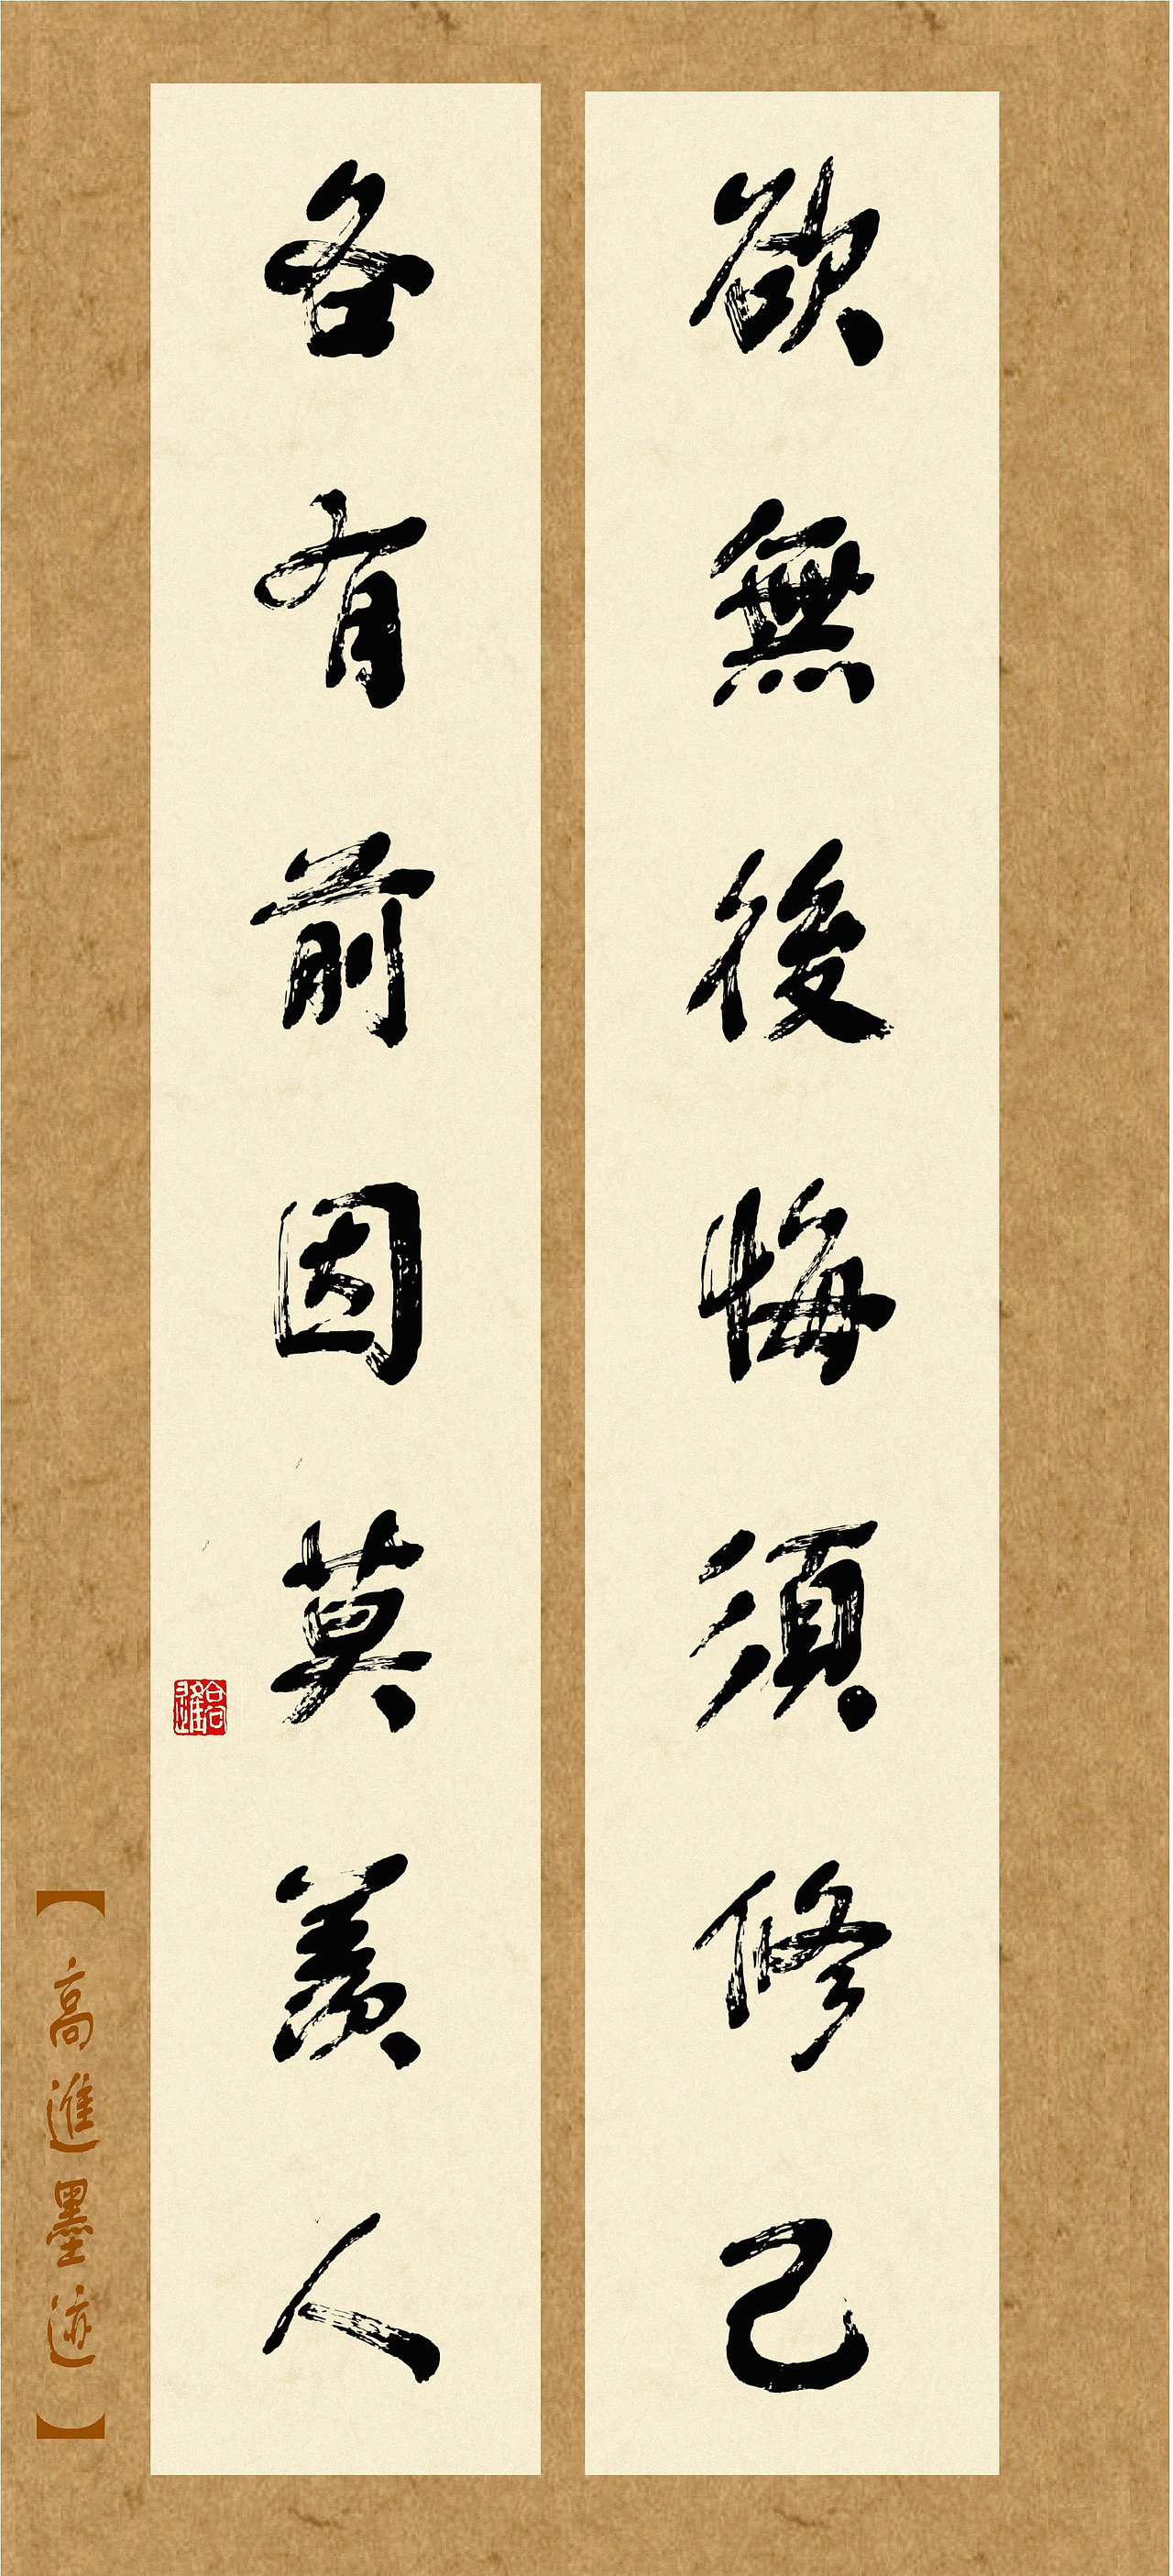 欲無後悔須修己
各有前因莫羨人
高進
【高進墨迹】